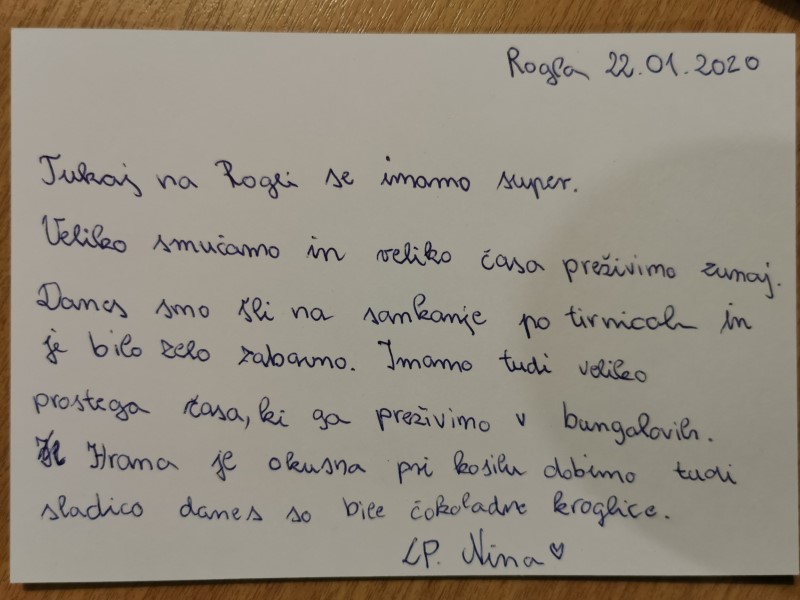 Rogla 22.01.2020
Tukaj na Rogli se imamo super.
Veliko smučamo in veliko časa preživimo zunaj.
Danes smo šli na sankanje po tirnicah in
je bilo zelo zabavno. Imamo tudi veliko
prostega časa, ki ga preživimo v bungalovih.
Hrana je okusna pri kosilu dobimo tudi
sladico danes so bile čokoladne kroglice.
LP. Nina ♡